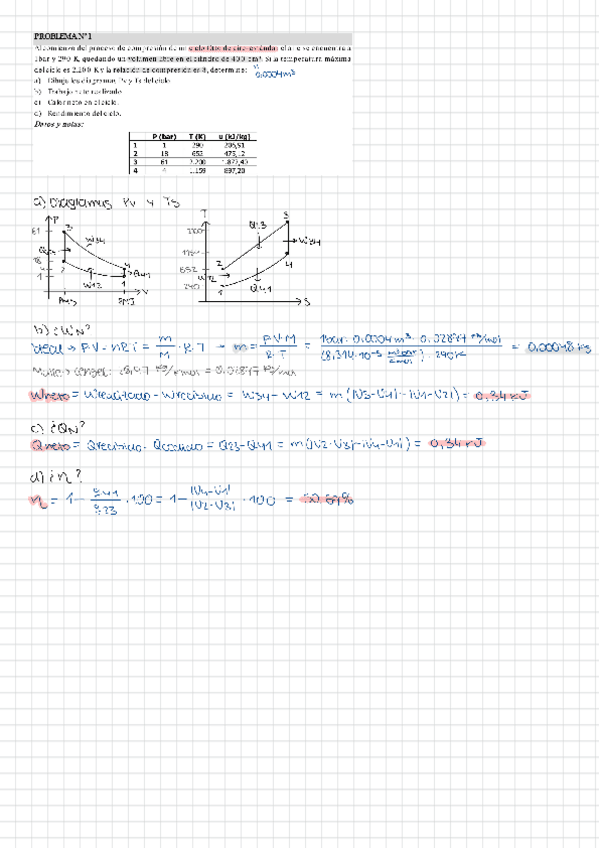 PROBLEMA Nº 1
Al comienzo del proceso de compresión de un ciclo Otto de aire estándar, el aire se encuentra a
1bar y 290 K, quedando un volumen libre en el cilindro de 400 cm³. Si la temperatura máxima
del ciclo es 2.200 K y la relación de compresión es 8, determine:
0.0004 m³
a) Dibuje los diagramas Pv y Ts del ciclo.
b) Trabajo neto realizado.
c) Calor neto en el ciclo.
d) Rendimiento del ciclo.
Datos y notas:
P (bar) T (K) u (kJ/kg)
1 1 290 206,91
2 18 652 475,12
3 61 2.200 1.872,40
4 4 1.159 897,20
a) Diagramas Pv y Ts
P
61
18
4
1
3
2
4
1
W34
Q23
Q41
W12
PMS
PMI
V
T
2200
1159
652
290
3
2
4
1
Q23
W34
W12
Q41
S
b) ¿WN?
Ideal → P·V = nRT = m/M · R·T → m = P·V·M / R·T = 1bar · 0.0004 m³ · 0.02897 kg/mol / (8,314·10⁻⁵) · 290K = 0.00048 kg
28,97 kg/kmol = 0.02897 kg/mol
Wneto = Wrealizado - Wrecibido = W34 - W12 = m(|U3-U4| - |U1-U2|) = 0,34 kJ
c) ¿QN?
Qneto = Qrecibido - Qcedido = Q23 - Q41 = m(|U2-U3| - |U4-U1|) = 0,34 kJ
d) ¿η?
η = 1 - q41/q23 · 100 = 1 - |U4-U1| / |U2-U3| · 100 =